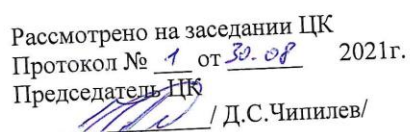 Рассмотрено на заседании ЦК
Протокол № 1 от 30.08 2021г.
Председатель ЦК
/ Д.С.Чипилев/